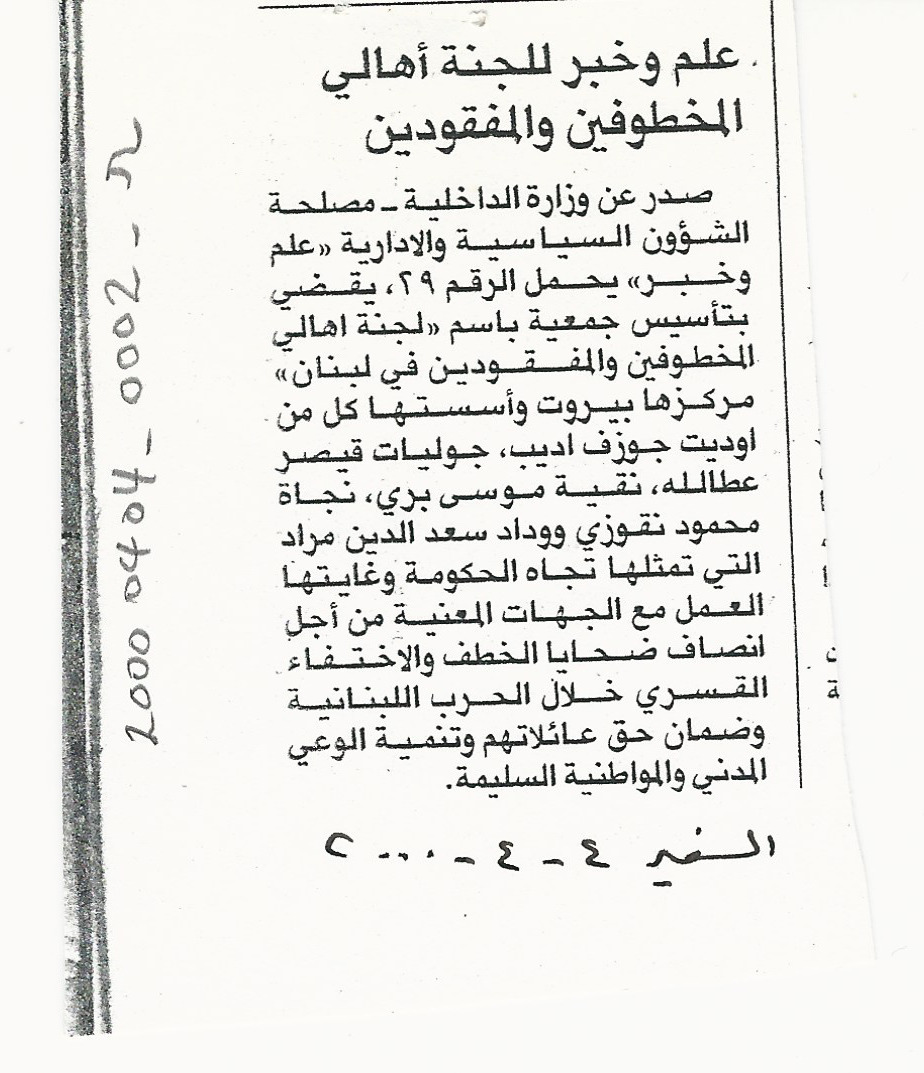 علم وخبر للجنة أهالي
المخطوفين والمفقودين
صدر عن وزارة الداخلية ـ مصلحة
الشؤون السياسية والادارية «علم
وخبر» يحمل الرقم ٢٩، يقضي
بتأسيس جمعية باسم «لجنة اهالي
المخطوفين والمفقودين في لبنان»
مركزها بيروت وأسستها كل من
اوديت جوزف اديب، جوليات قيصر
عطالله، نقية موسى بري، نجاة
محمود نقوزي ووداد سعد الدين مراد
التي تمثلها تجاه الحكومة وغايتها
العمل مع الجهات المعنية من أجل
انصاف ضحايا الخطف والاختفاء
القسري خلال الحرب اللبنانية
وضمان حق عائلاتهم وتنمية الوعي
المدني والمواطنية السليمة.
السفير ٤ - ٤ - ٢٠٠٠
2000 0404 - 0002 -